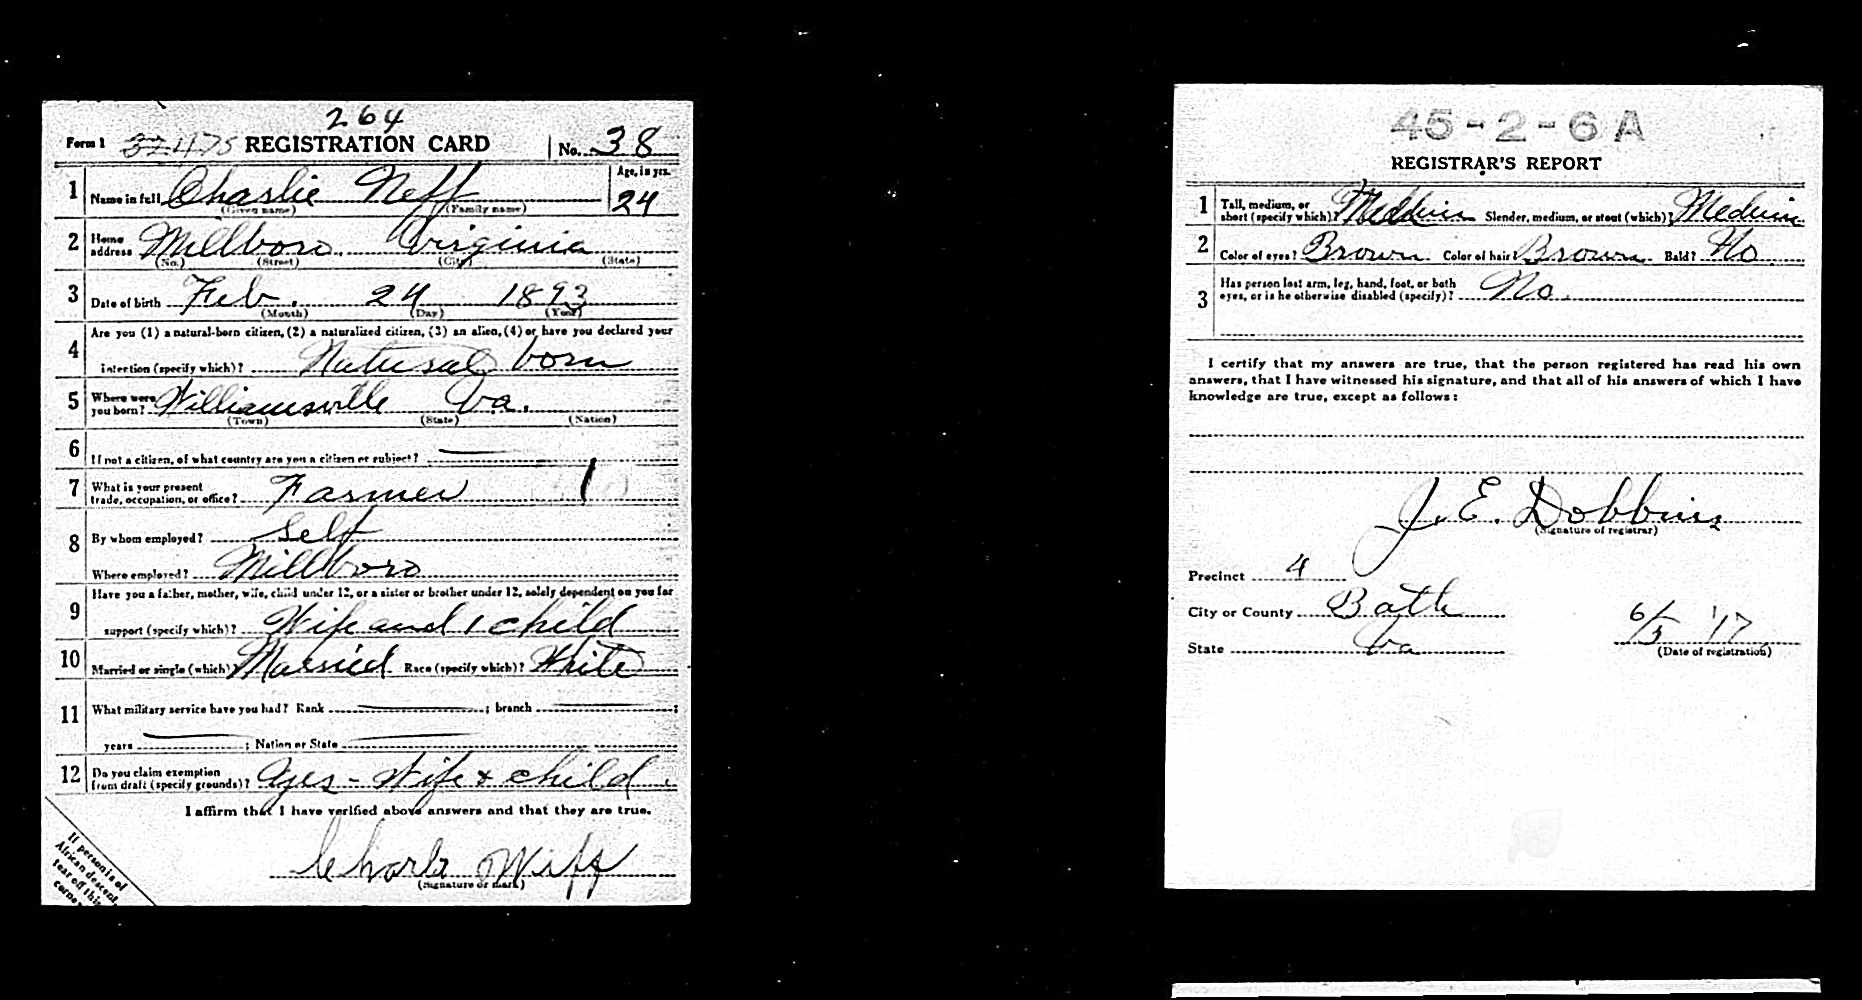 264
Form 1 32475 REGISTRATION CARD No. 38
1 Name in full Charlie Neff Age, in yrs. 24
(Given name) (Family name)
2 Home address Millboro, Virginia
(No.) (Street) (City) (State)
3 Date of birth Feb. 24 1893
(Month) (Day) (Year)
4 Are you (1) a natural-born citizen, (2) a naturalized citizen, (3) an alien, (4) or have you declared your
intention (specify which)? Natural born
5 Where were you born? Williamsville Va.
(Town) (State) (Nation)
6 If not a citizen, of what country are you a citizen or subject?
7 What is your present trade, occupation, or office? Farmer 1
8 By whom employed? Self
Where employed? Millboro
9 Have you a father, mother, wife, child under 12, or a sister or brother under 12, solely dependent on you for
support (specify which)? Wife and 1 child
10 Married or single (which)? Married Race (specify which)? White
11 What military service have you had? Rank ; branch ;
years ; Nation or State
12 Do you claim exemption from draft (specify grounds)? Yes - Wife & child.
I affirm that I have verified above answers and that they are true.
Charle Neff
(Signature or mark)
If person is of
African descent,
tear off this
corner
45-2-6 A
REGISTRAR'S REPORT
1 Tall, medium, or short (specify which)? Medium Slender, medium, or stout (which)? Medium
2 Color of eyes? Brown Color of hair? Brown Bald? No
3 Has person lost arm, leg, hand, foot, or both
eyes, or is he otherwise disabled (specify)? No.
I certify that my answers are true, that the person registered has read his own
answers, that I have witnessed his signature, and that all of his answers of which I have
knowledge are true, except as follows:
J. E. Dobbins
(Signature of registrar)
Precinct 4
City or County Bath
State Va
6/5 '17
(Date of registration)